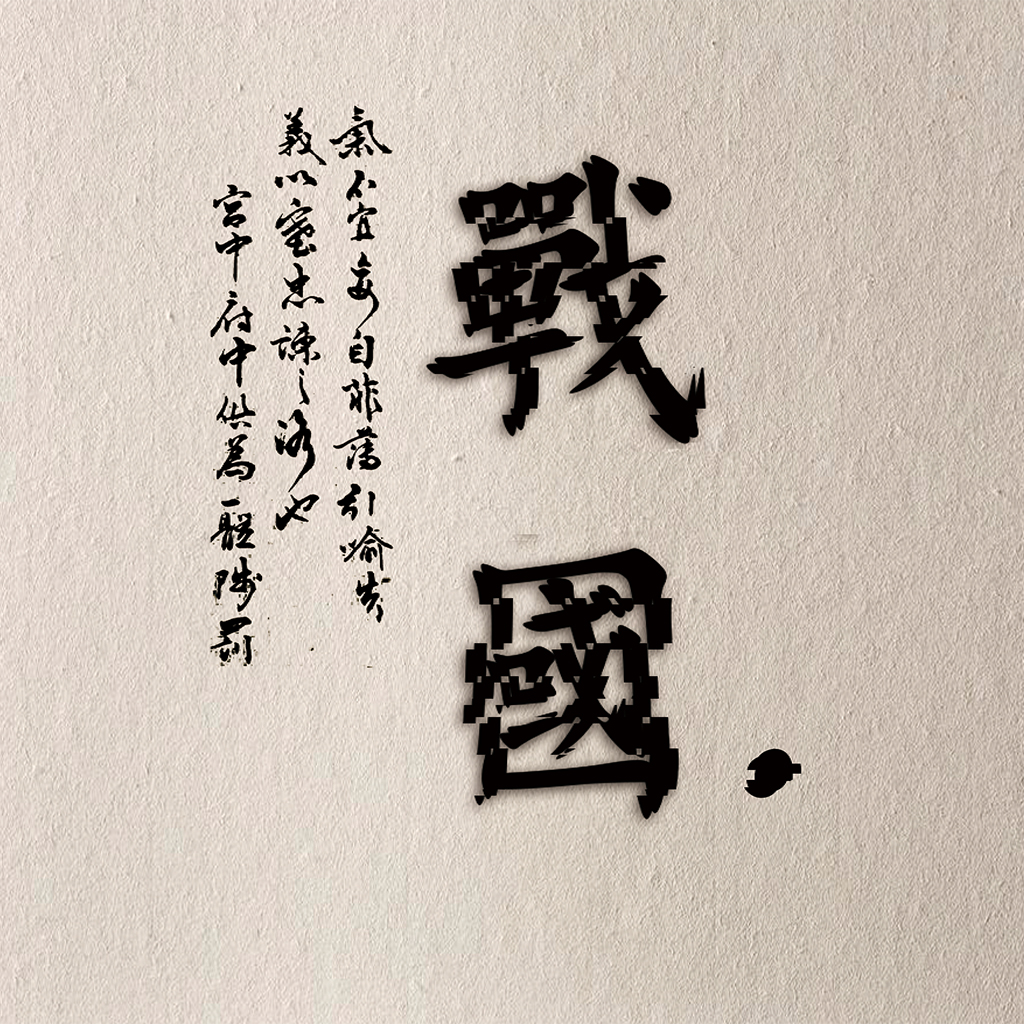 戰國
氣不宜妄自菲薄引喻失
義以塞忠諫之路也
宮中府中俱為一體陟罰